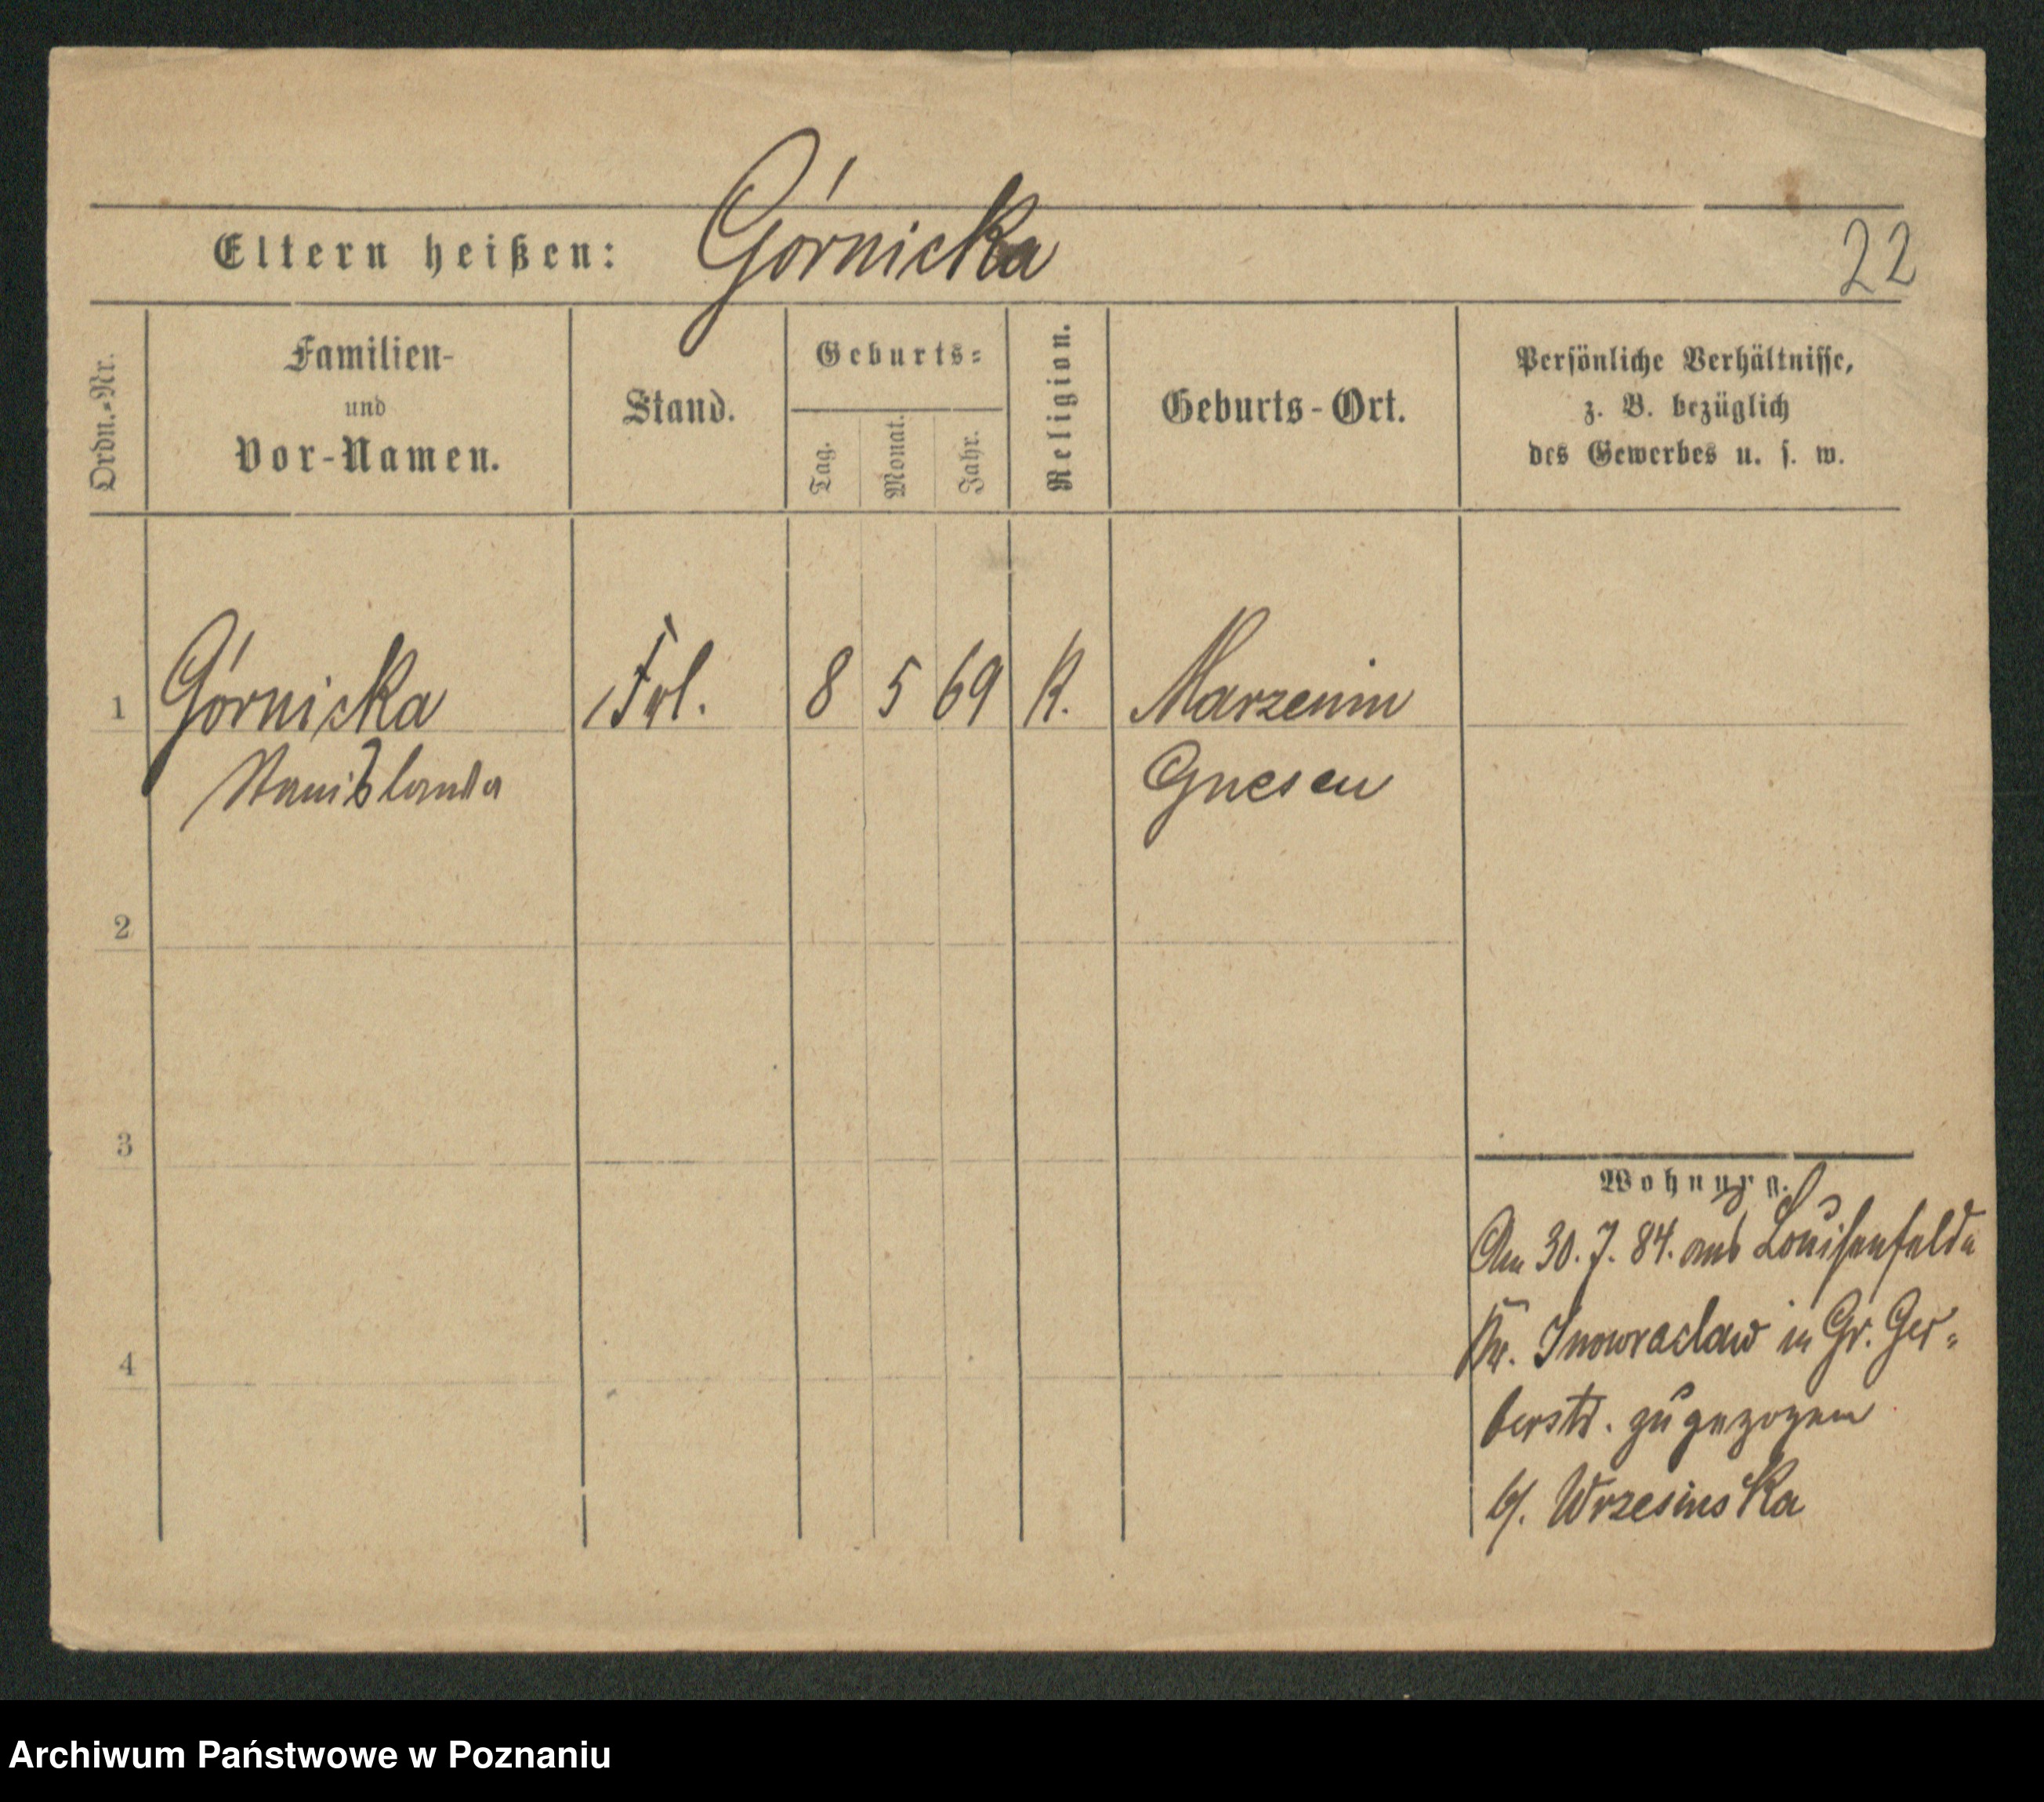 Eltern heißen: Górnicka
22
Ordn.-Nr.
Familien-
und
Vor-Namen.
Stand.
Geburts-
Tag.
Monat.
Jahr.
Religion.
Geburts-Ort.
Persönliche Verhältnisse,
z. B. bezüglich
des Gewerbes u. s. w.
1 Górnicka Frl. 8 5 69 K. Marzenin
Stanislawa Gnesen
2
3
4
Wohnung.
Am 30. 7. 84. aus Louisenfelde
Kr. Inowraclaw in Gr. Ger-
berstr. zugezogen
b/. Wrzesinska
Archiwum Państwowe w Poznaniu